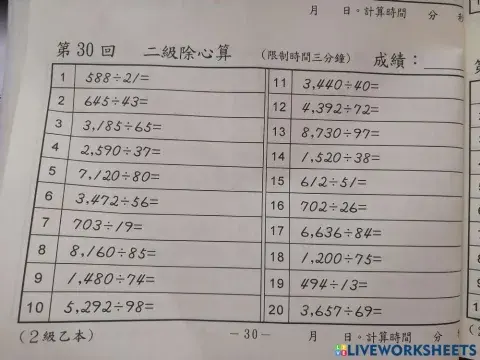 月 日。計算時間 分
第30回 二級除心算 (限制時間三分鐘) 成績:
1 588÷21=
2 645÷43=
3 3,185÷65=
4 2,590÷37=
5 7,120÷80=
6 3,472÷56=
7 703÷19=
8 8,160÷85=
9 1,480÷74=
10 5,292÷98=
11 3,440÷40=
12 4,392÷72=
13 8,730÷97=
14 1,520÷38=
15 612÷51=
16 702÷26=
17 6,636÷84=
18 1,200÷75=
19 494÷13=
20 3,657÷69=
(2級乙本) －30－ 月 日。計算時間 分
LIVEWORKSHEETS